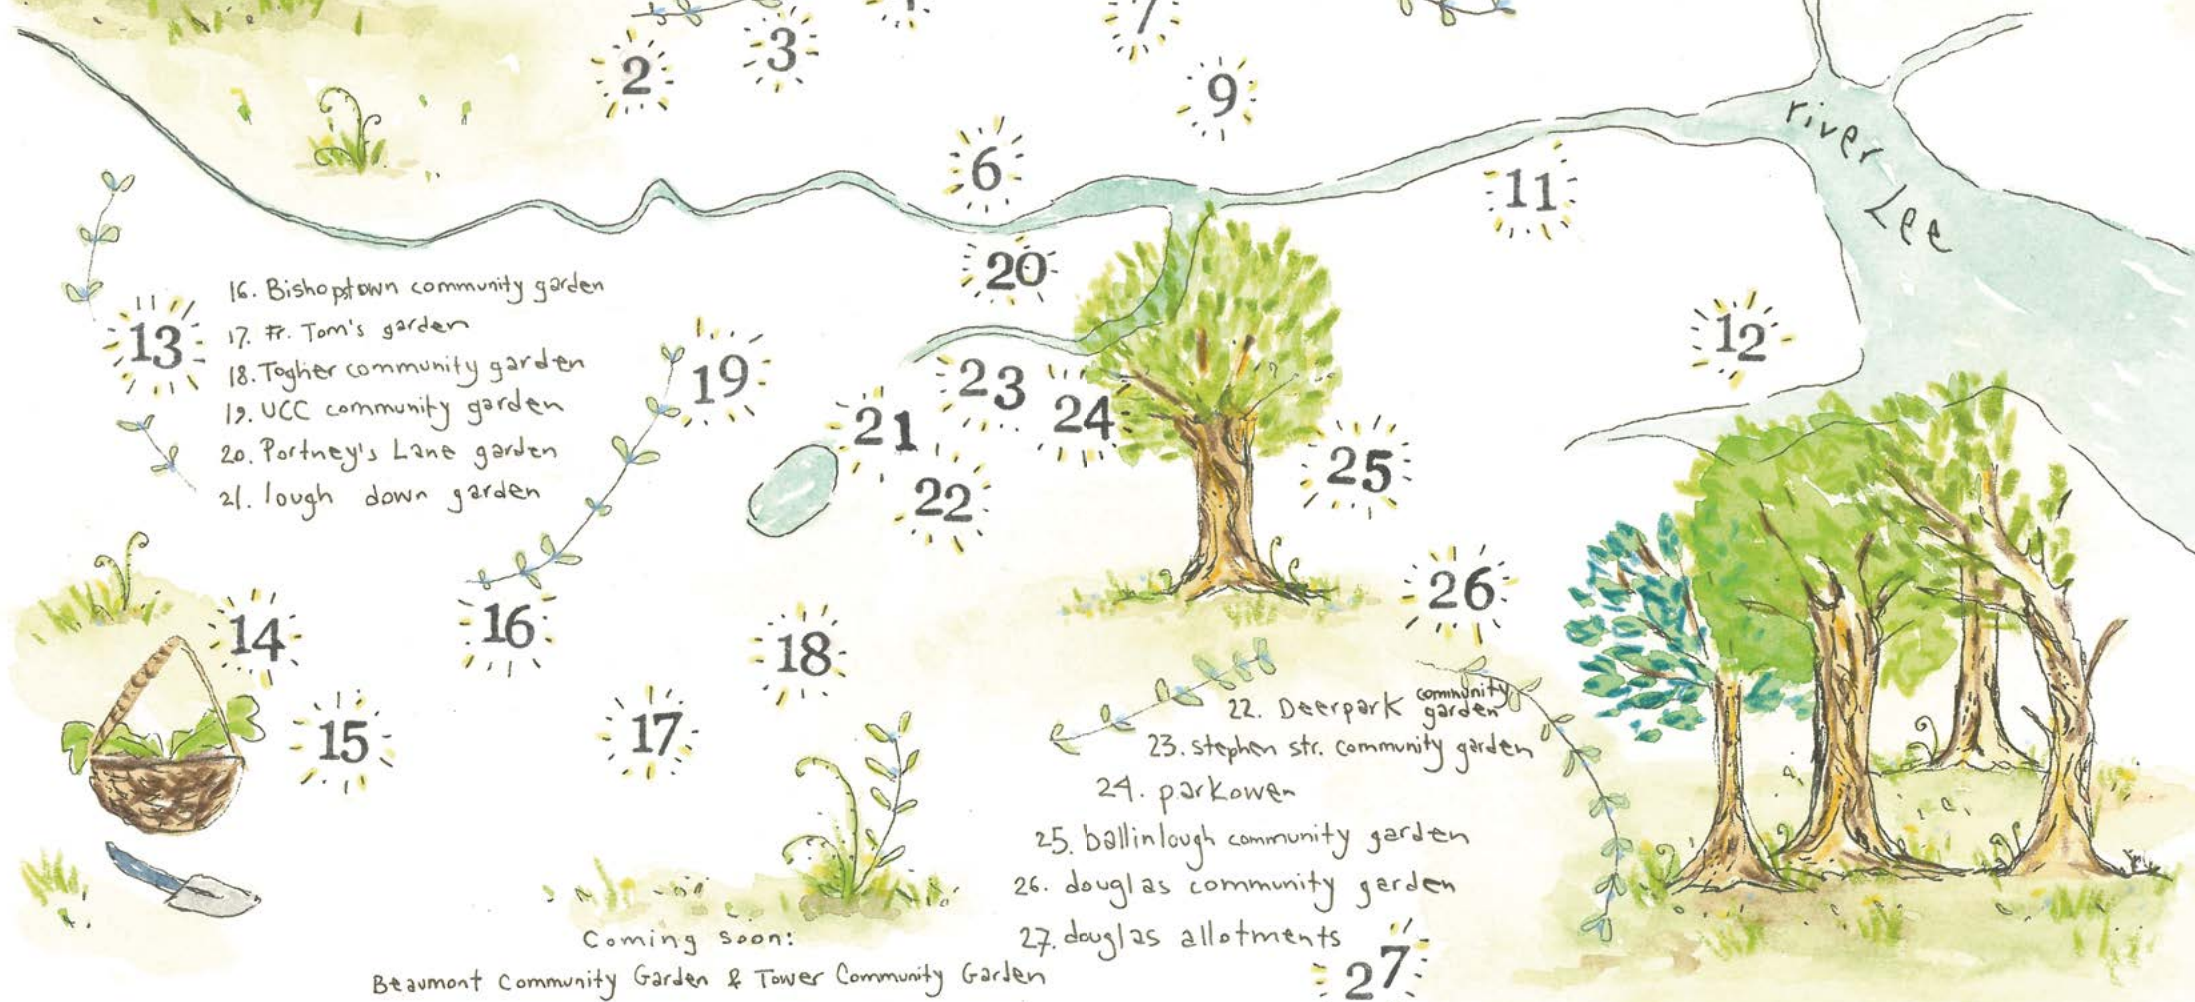 2
3
7
9
6
11
river Lee
20
12
13
16. Bishopstown community garden
17. Fr. Tom's garden
18. Togher community garden
19. UCC community garden
20. Portney's Lane garden
21. lough down garden
19
23
24
21
25
22
26
14
16
18
15
17
22. Deerpark community garden
23. stephen str. community garden
24. parkowen
25. ballinlough community garden
26. douglas community garden
27. douglas allotments
27
Coming soon:
Beaumont Community Garden & Tower Community Garden